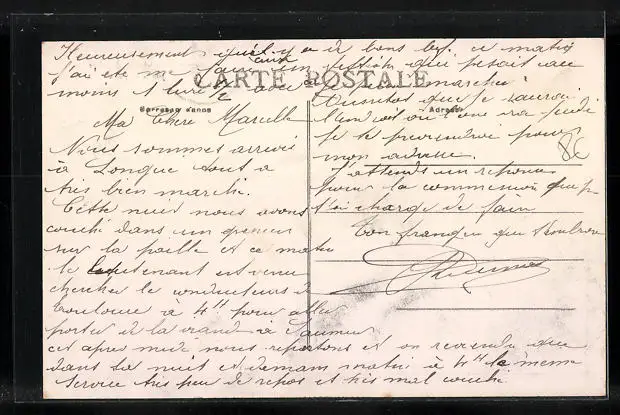 Heureusement qu'il y a de bons bif. ce matin
j'ai été me faire cuire un que pesait au
moins 1 livre avec
CARTE POSTALE
Correspondance
Adresse
8€
Ma Chère Marcelle
Nous sommes arrivés
à Longué tout a
très bien marché.
Cette nuit nous avons
couché dans un grenier
sur la paille et ce matin
le lieutenant est venu
chercher le conducteurs de
à 4H pour aller
porter de la viande à Saumur
cet après midi nous repartons et on reviendra que
dans la nuit et demain matin à 4H le même
service très peu de repos et très mal couché.
Aussitôt que je saurai
l'endroit où l'on
je te pour
mon adresse.
J'attends une réponse
pour la commission que je
t'ai chargé de faire
Ton que t'embrasse